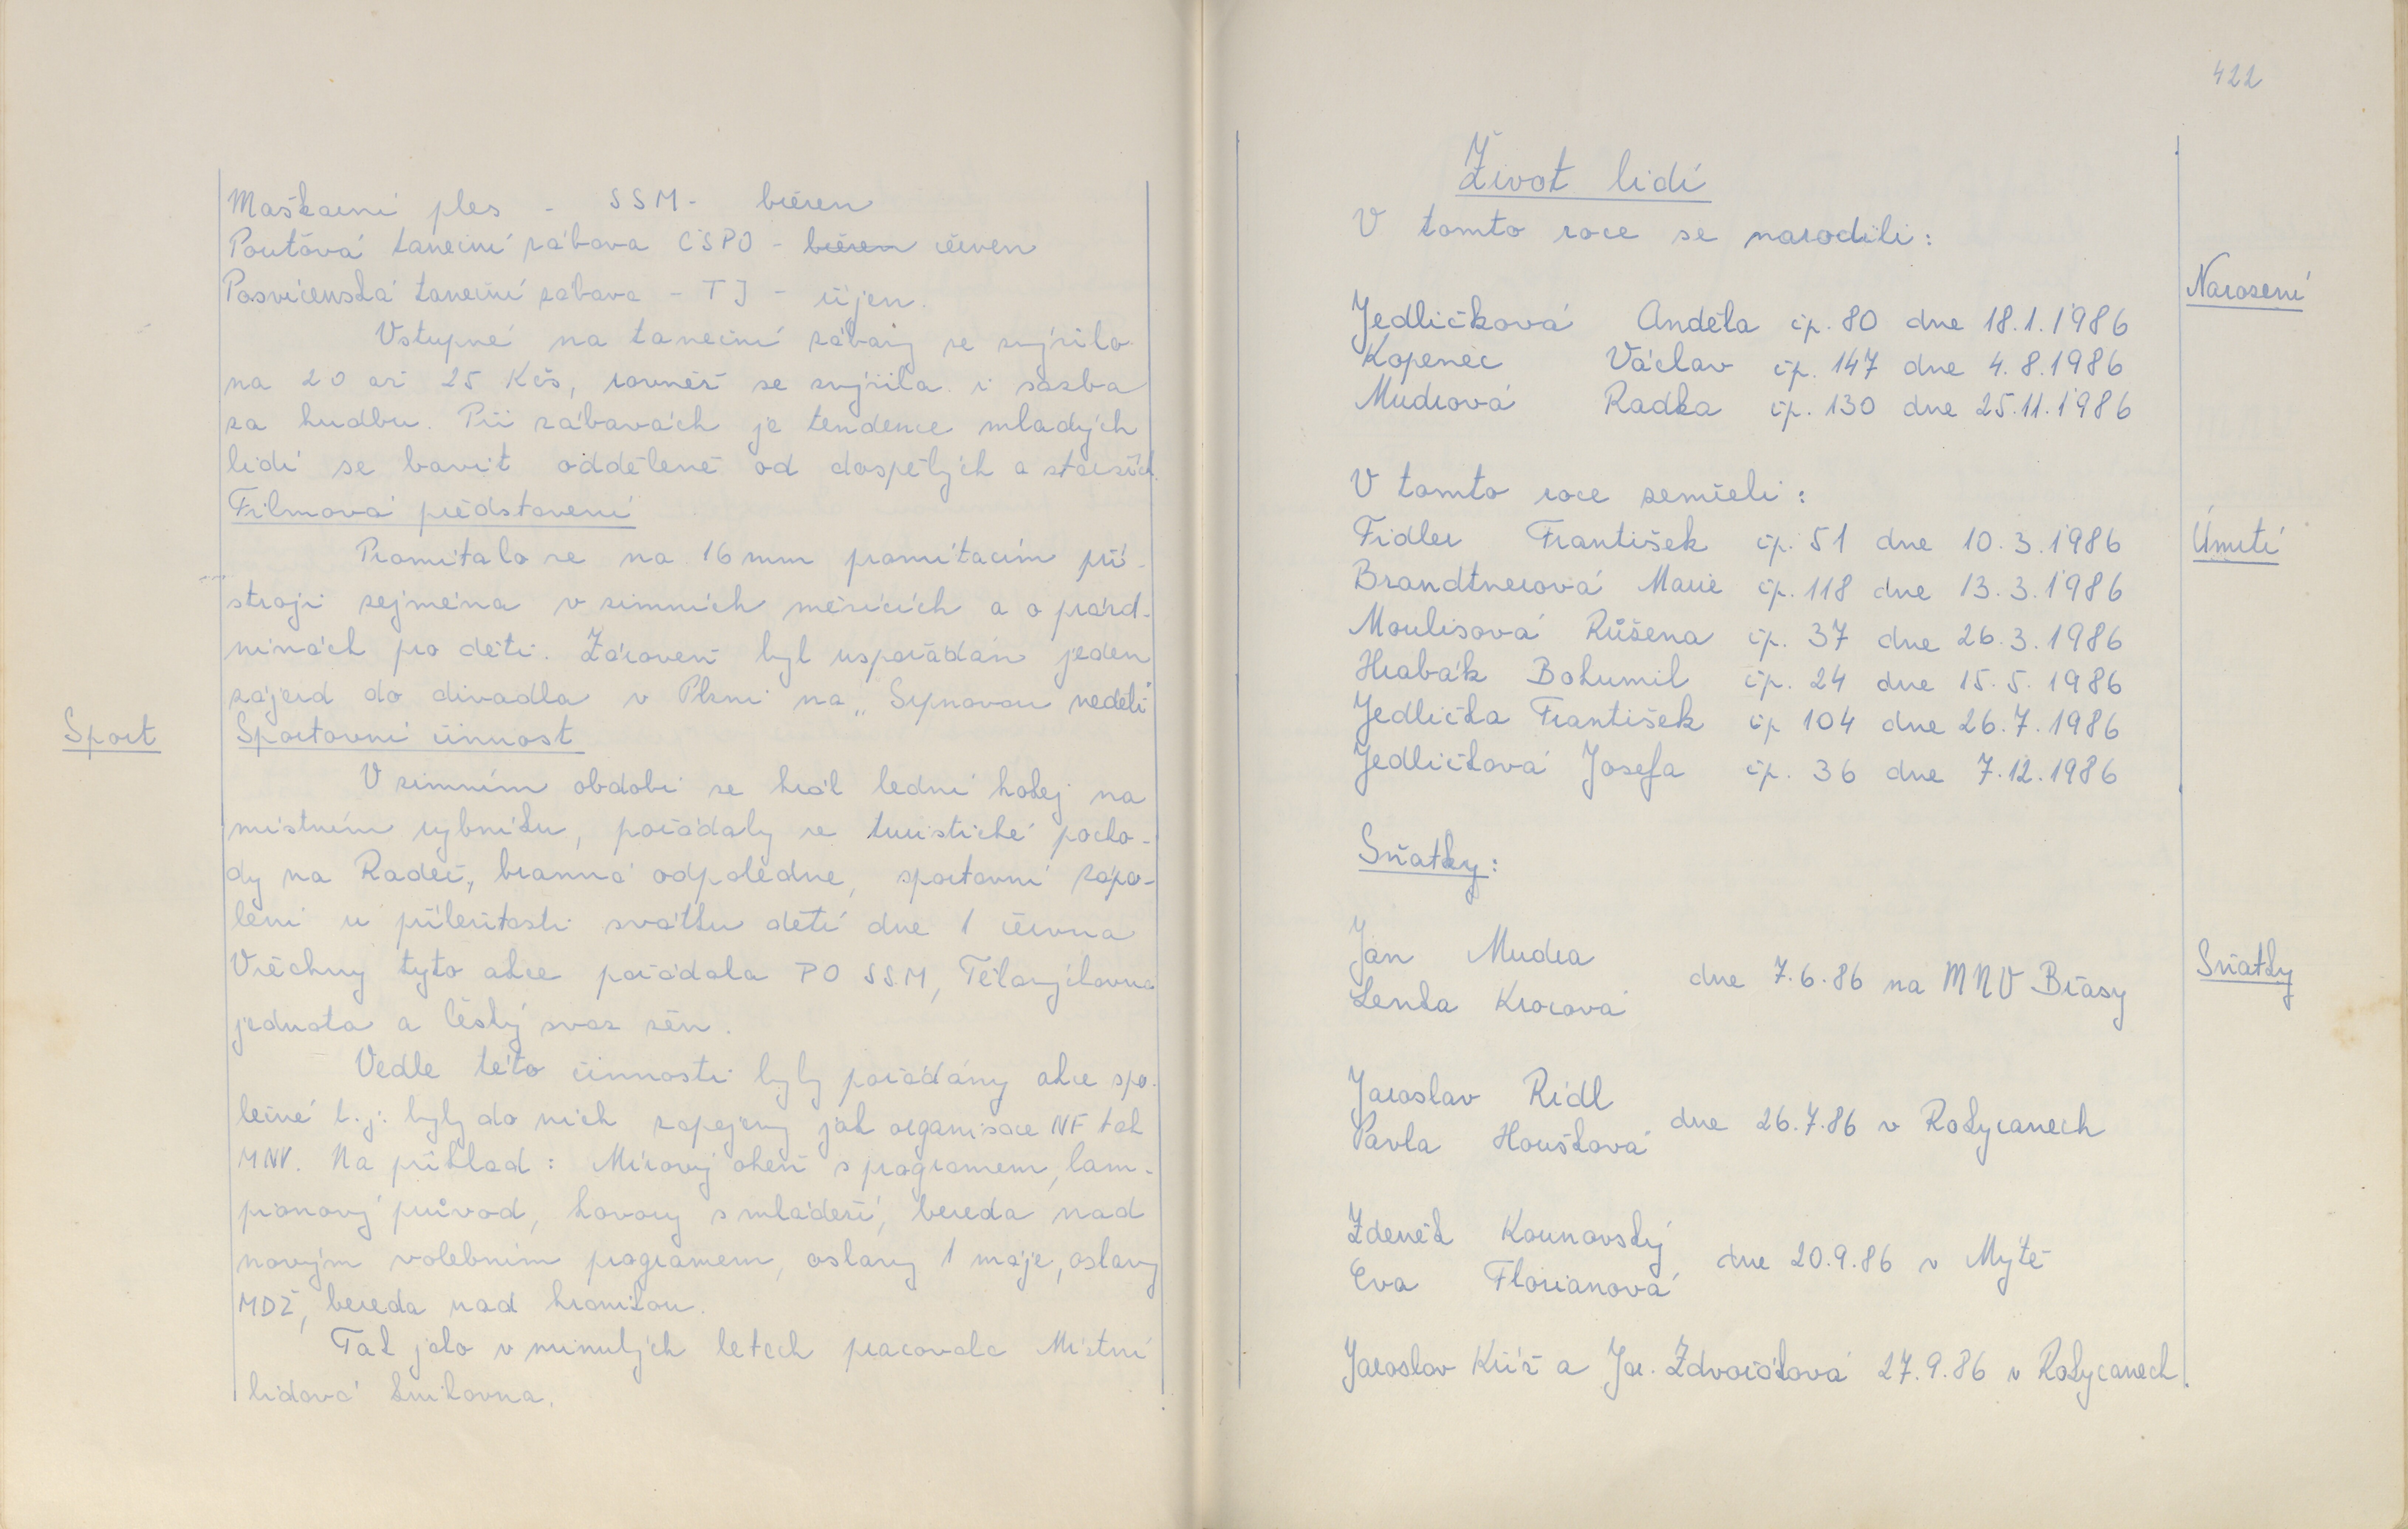 Maškarní ples - SSM - březen
Pouťová taneční zábava ČSPO - březen červen
Posvícenská taneční zábava - TJ - říjen.
Vstupné na taneční zábavy se zvýšilo
na 20 až 25 Kčs, rovněž se zvýšila i sazba
za hudbu. Při zábavách je tendence mladých
lidí se bavit odděleně od dospělých a starších.
Filmová představení
Promítalo se na 16 mm promítacím pří-
stroji zejména v zimních měsících a o prázd-
ninách pro děti. Zároveň byl uspořádán jeden
zájezd do divadla v Plzni na „Srpnovou neděli"
Sport
Sportovní činnost
V zimním období se hrál lední hokej na
místním rybníku, pořádaly se turistické pocho-
dy na Radeč, branná odpoledne, sportovní zápo-
lení u příležitosti svátku dětí dne 1 června
Všechny tyto akce pořádala PO SSM, Tělovýchovná
jednota a Český svaz žen.
Vedle této činnosti byly pořádány akce spo-
lečné t.j. byly do nich zapojeny jak organisace NF tak
MNV. Na příklad: Mírový oheň s programem, lam-
pionový průvod, hovory s mládeží, beseda nad
novým volebním programem, oslavy 1 máje, oslavy
MDŽ, beseda nad kronikou.
Tak jako v minulých letech pracovala Místní
lidová knihovna.
422
Život lidí
V tomto roce se narodili:
Narození
Jedličková Anděla čp. 80 dne 18.1.1986
Kopenec Václav čp. 147 dne 4.8.1986
Mudrová Radka čp. 130 dne 25.11.1986
V tomto roce zemřeli:
Úmrtí
Fidler František čp. 51 dne 10.3.1986
Brandtnerová Marie čp. 118 dne 13.3.1986
Moulisová Růžena čp. 37 dne 26.3.1986
Hrabák Bohumil čp. 24 dne 15.5.1986
Jedlička František čp 104 dne 26.7.1986
Jedličková Josefa čp. 36 dne 7.12.1986
Sňatky:
Sňatky
Jan Mudra
Lenka Krocová dne 7.6.86 na MNV Břasy
Jaroslav Ridl
Pavla Houšková dne 26.7.86 v Rokycanech
Zdeněk Kounovský
Eva Florianová dne 20.9.86 v Mýtě
Jaroslav Kříž a Jar. Zdvořáková 27.9.86 v Rokycanech.